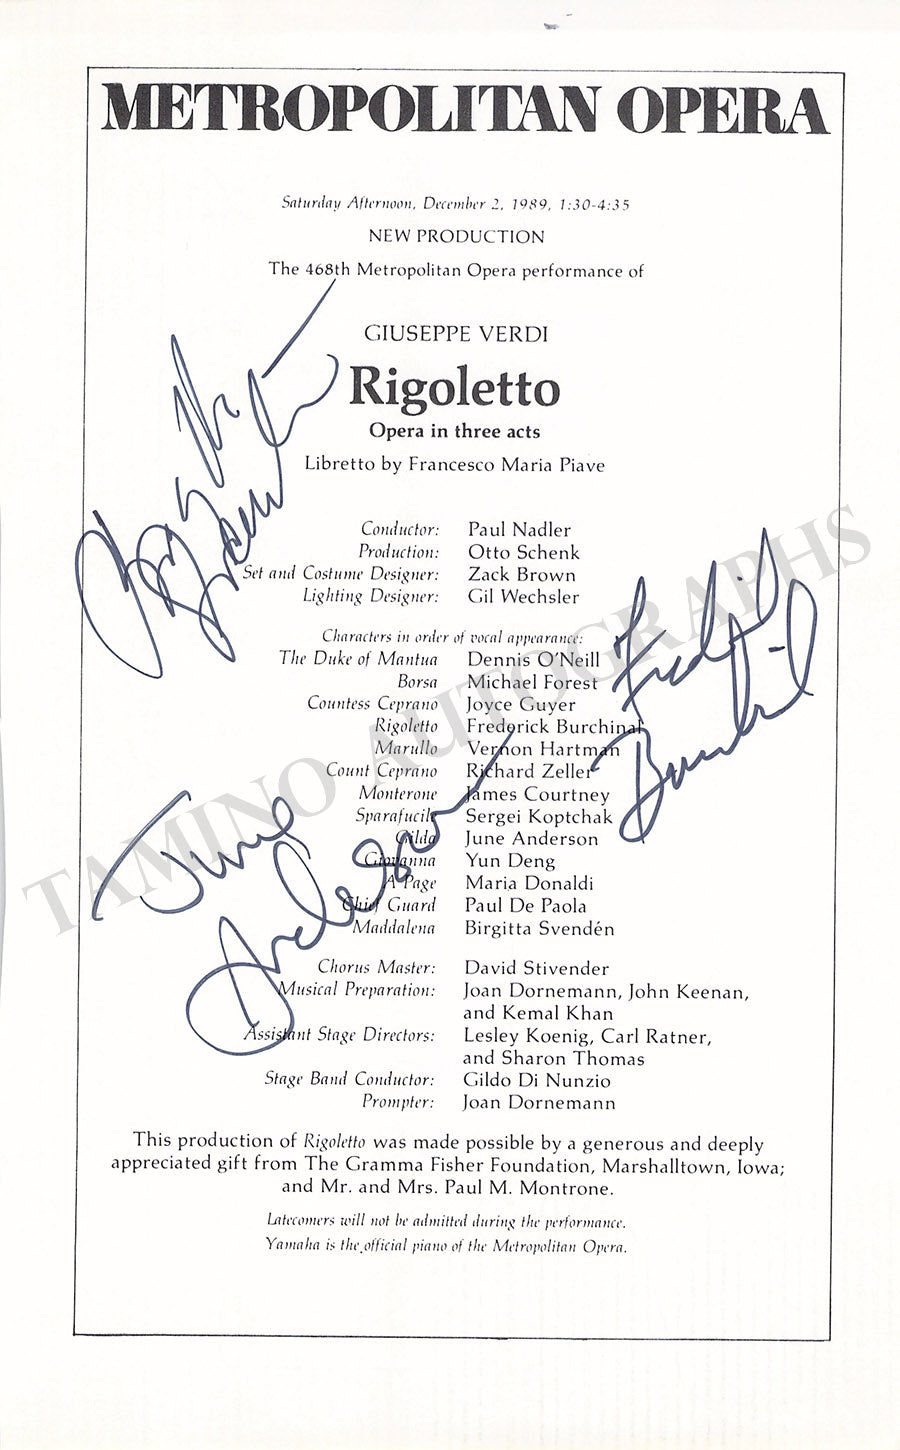 METROPOLITAN OPERA
Saturday Afternoon, December 2, 1989, 1:30-4:35
NEW PRODUCTION
The 468th Metropolitan Opera performance of
GIUSEPPE VERDI
Rigoletto
Opera in three acts
Libretto by Francesco Maria Piave
Conductor: Paul Nadler
Production: Otto Schenk
Set and Costume Designer: Zack Brown
Lighting Designer: Gil Wechsler
Characters in order of vocal appearance:
The Duke of Mantua Dennis O'Neill
Borsa Michael Forest
Countess Ceprano Joyce Guyer
Rigoletto Frederick Burchinal
Marullo Vernon Hartman
Count Ceprano Richard Zeller
Monterone James Courtney
Sparafucile Sergei Koptchak
Gilda June Anderson
Giovanna Yun Deng
A Page Maria Donaldi
Chief Guard Paul De Paola
Maddalena Birgitta Svendén
Chorus Master: David Stivender
Musical Preparation: Joan Dornemann, John Keenan,
and Kemal Khan
Assistant Stage Directors: Lesley Koenig, Carl Ratner,
and Sharon Thomas
Stage Band Conductor: Gildo Di Nunzio
Prompter: Joan Dornemann
This production of Rigoletto was made possible by a generous and deeply
appreciated gift from The Gramma Fisher Foundation, Marshalltown, Iowa;
and Mr. and Mrs. Paul M. Montrone.
Latecomers will not be admitted during the performance.
Yamaha is the official piano of the Metropolitan Opera.
June
Anderson
Burchinal
TAMINO AUTOGRAPHS